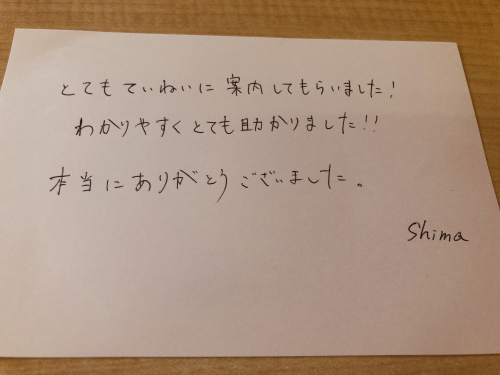 とてもていねいに案内してもらいました!
わかりやすくとても助かりました!!
本当にありがとうございました。
Shima